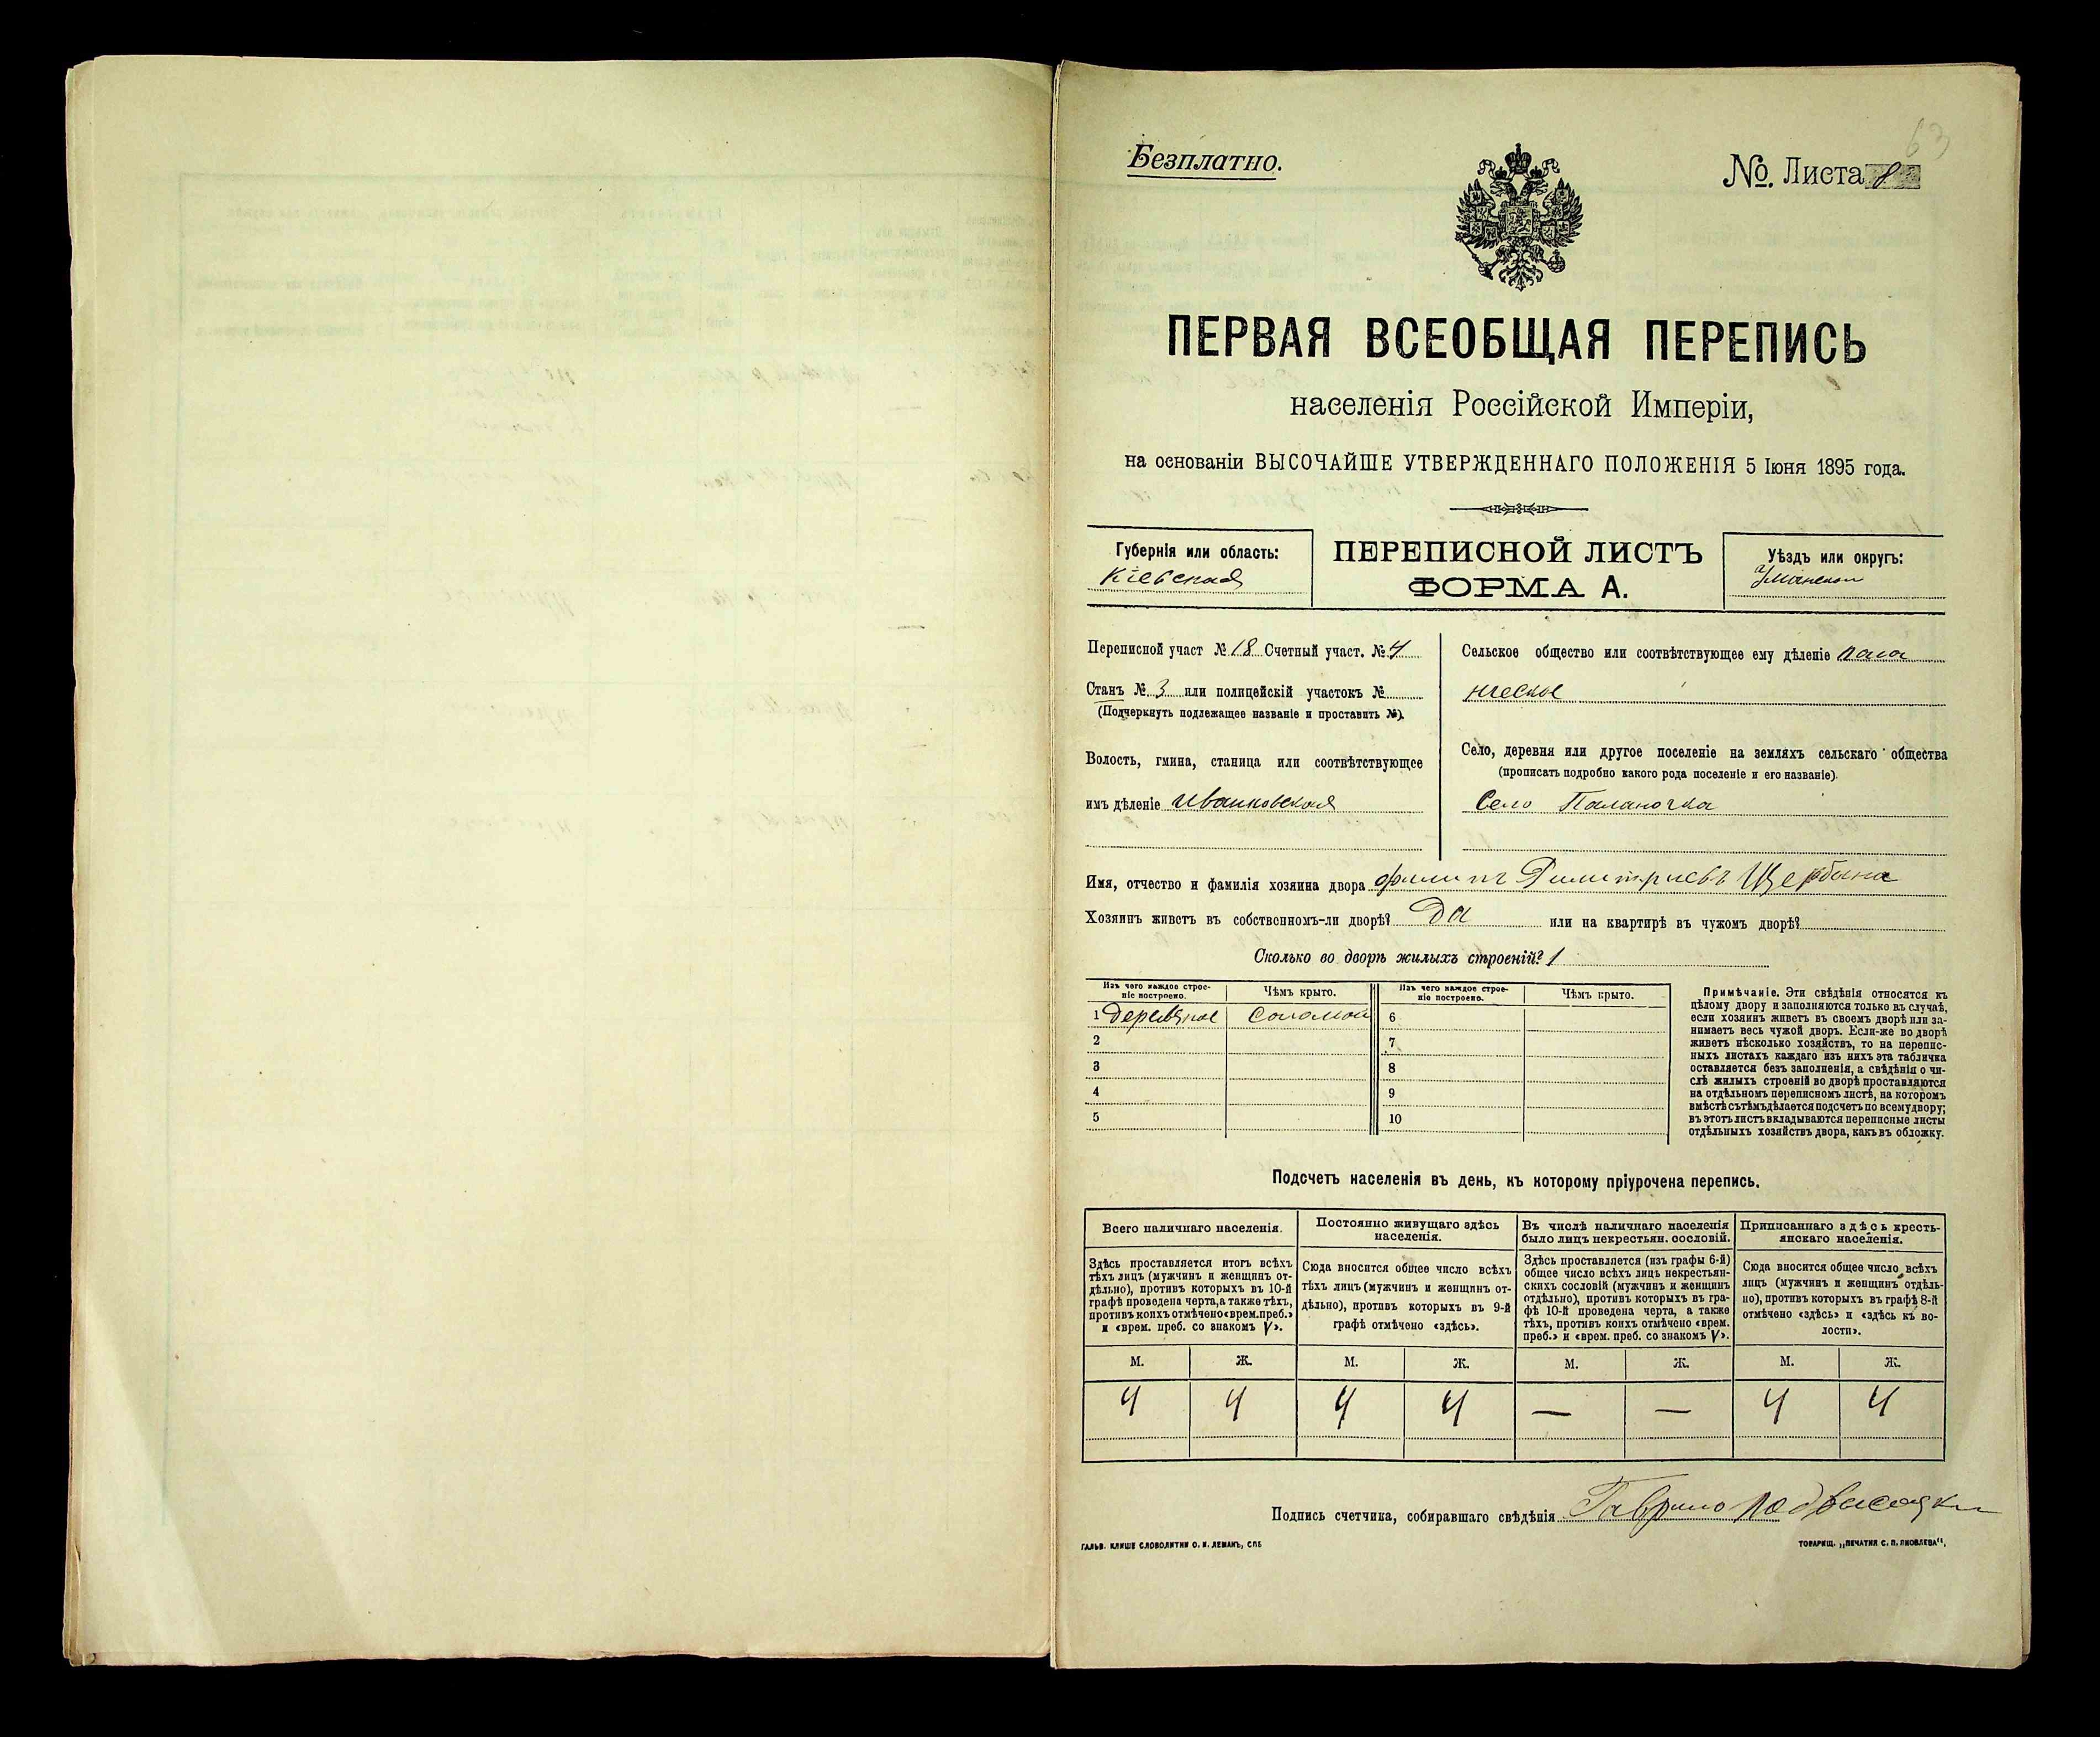 63
Безплатно.
№. Листа 8
ПЕРВАЯ ВСЕОБЩАЯ ПЕРЕПИСЬ
населенія Россійской Имперіи,
на основаніи ВЫСОЧАЙШЕ УТВЕРЖДЕННАГО ПОЛОЖЕНІЯ 5 Іюня 1895 года.
Губернія или область:
Кіевская
ПЕРЕПИСНОЙ ЛИСТЪ
ФОРМА А.
Уѣздъ или округъ:
Уманскій
Переписной участ № 18 Счетный участ. № 4
Станъ № 3 или полицейскій участокъ №
(Подчеркнуть подлежащее названіе и проставить №).
Волость, гмина, станица или соотвѣтствующее
имъ дѣленіе Иваньковская
Сельское общество или соотвѣтствующее ему дѣленіе
Село, деревня или другое поселеніе на земляхъ сельскаго общества
(прописать подробно какого рода поселеніе и его названіе).
Село Паланочка
Имя, отчество и фамилія хозяина двора Филипъ Димитріевъ Щербина
Хозяинъ живетъ въ собственномъ-ли дворѣ? Да или на квартирѣ въ чужомъ дворѣ?
Сколько во дворѣ жилыхъ строеній? 1
Изъ чего каждое строе-
ніе построено.
Чѣмъ крыто.
Изъ чего каждое строе-
ніе построено.
Чѣмъ крыто.
1 деревяное соломой 6
2 7
3 8
4 9
5 10
Примѣчаніе. Эти свѣдѣнія относятся къ
цѣлому двору и заполняются только въ случаѣ,
если хозяинъ живетъ въ своемъ дворѣ или за-
нимаетъ весь чужой дворъ. Если-же во дворѣ
живетъ нѣсколько хозяйствъ, то на перепис-
ныхъ листахъ каждаго изъ нихъ эта табличка
оставляется безъ заполненія, а свѣдѣнія о чи-
слѣ жилыхъ строеній во дворѣ проставляются
на отдѣльномъ переписномъ листѣ, на которомъ
вмѣстѣ съ тѣмъ дѣлается подсчетъ по всему двору;
въ этотъ листъ вкладываются переписные листы
отдѣльныхъ хозяйствъ двора, какъ въ обложку.
Подсчетъ населенія въ день, къ которому пріурочена перепись.
Всего наличнаго населенія.
Здѣсь проставляется итогъ всѣхъ
тѣхъ лицъ (мужчинъ и женщинъ от-
дѣльно), противъ которыхъ въ 10-й
графѣ проведена черта, а также тѣхъ,
противъ коихъ отмѣчено «врем. преб.»
и «врем. преб. со знакомъ V».
Постоянно живущаго здѣсь
населенія.
Сюда вносится общее число всѣхъ
тѣхъ лицъ (мужчинъ и женщинъ от-
дѣльно), противъ которыхъ въ 9-й
графѣ отмѣчено «здѣсь».
Въ числѣ наличнаго населенія
было лицъ некрестьян. сословій.
Здѣсь проставляется (изъ графы 6-й)
общее число всѣхъ лицъ некрестьян-
скихъ сословій (мужчинъ и женщинъ
отдѣльно), противъ которыхъ въ гра-
фѣ 10-й проведена черта, а также
тѣхъ, противъ коихъ отмѣчено «врем.
преб.» и «врем. преб. со знакомъ V».
Приписаннаго здѣсь кресть-
янскаго населенія.
Сюда вносится общее число всѣхъ
лицъ (мужчинъ и женщинъ отдѣль-
но), противъ которыхъ въ графѣ 8-й
отмѣчено «здѣсь» и «здѣсь къ во-
лости».
М. Ж. М. Ж. М. Ж. М. Ж.
4 4 4 4 — — 4 4
Подпись счетчика, собиравшаго свѣдѣнія Гаврило Подвысоцкій
ГАЛЬВ. КЛИШЕ СЛОВОЛИТНИ О. И. ЛЕМАНЪ, СПБ
ТОВАРИЩ. „ПЕЧАТНЯ С. П. ЯКОВЛЕВА".